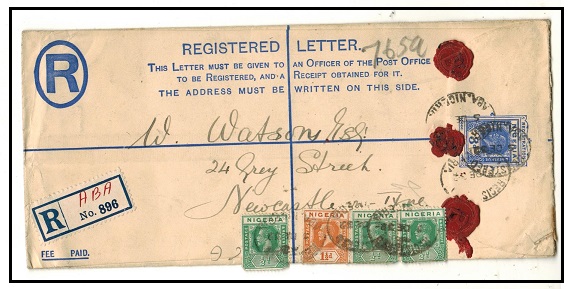 REGISTERED LETTER.
765a
R
THIS LETTER MUST BE GIVEN TO AN OFFICER OF THE POST OFFICE
TO BE REGISTERED, AND A RECEIPT OBTAINED FOR IT.
THE ADDRESS MUST BE WRITTEN ON THIS SIDE.
W. Watson Esq.
24 Grey Street
Newcastle Tyne
R ABA
No. 896
FEE PAID.
NIGERIA NIGERIA NIGERIA NIGERIA
½d 1½d ½d ½d